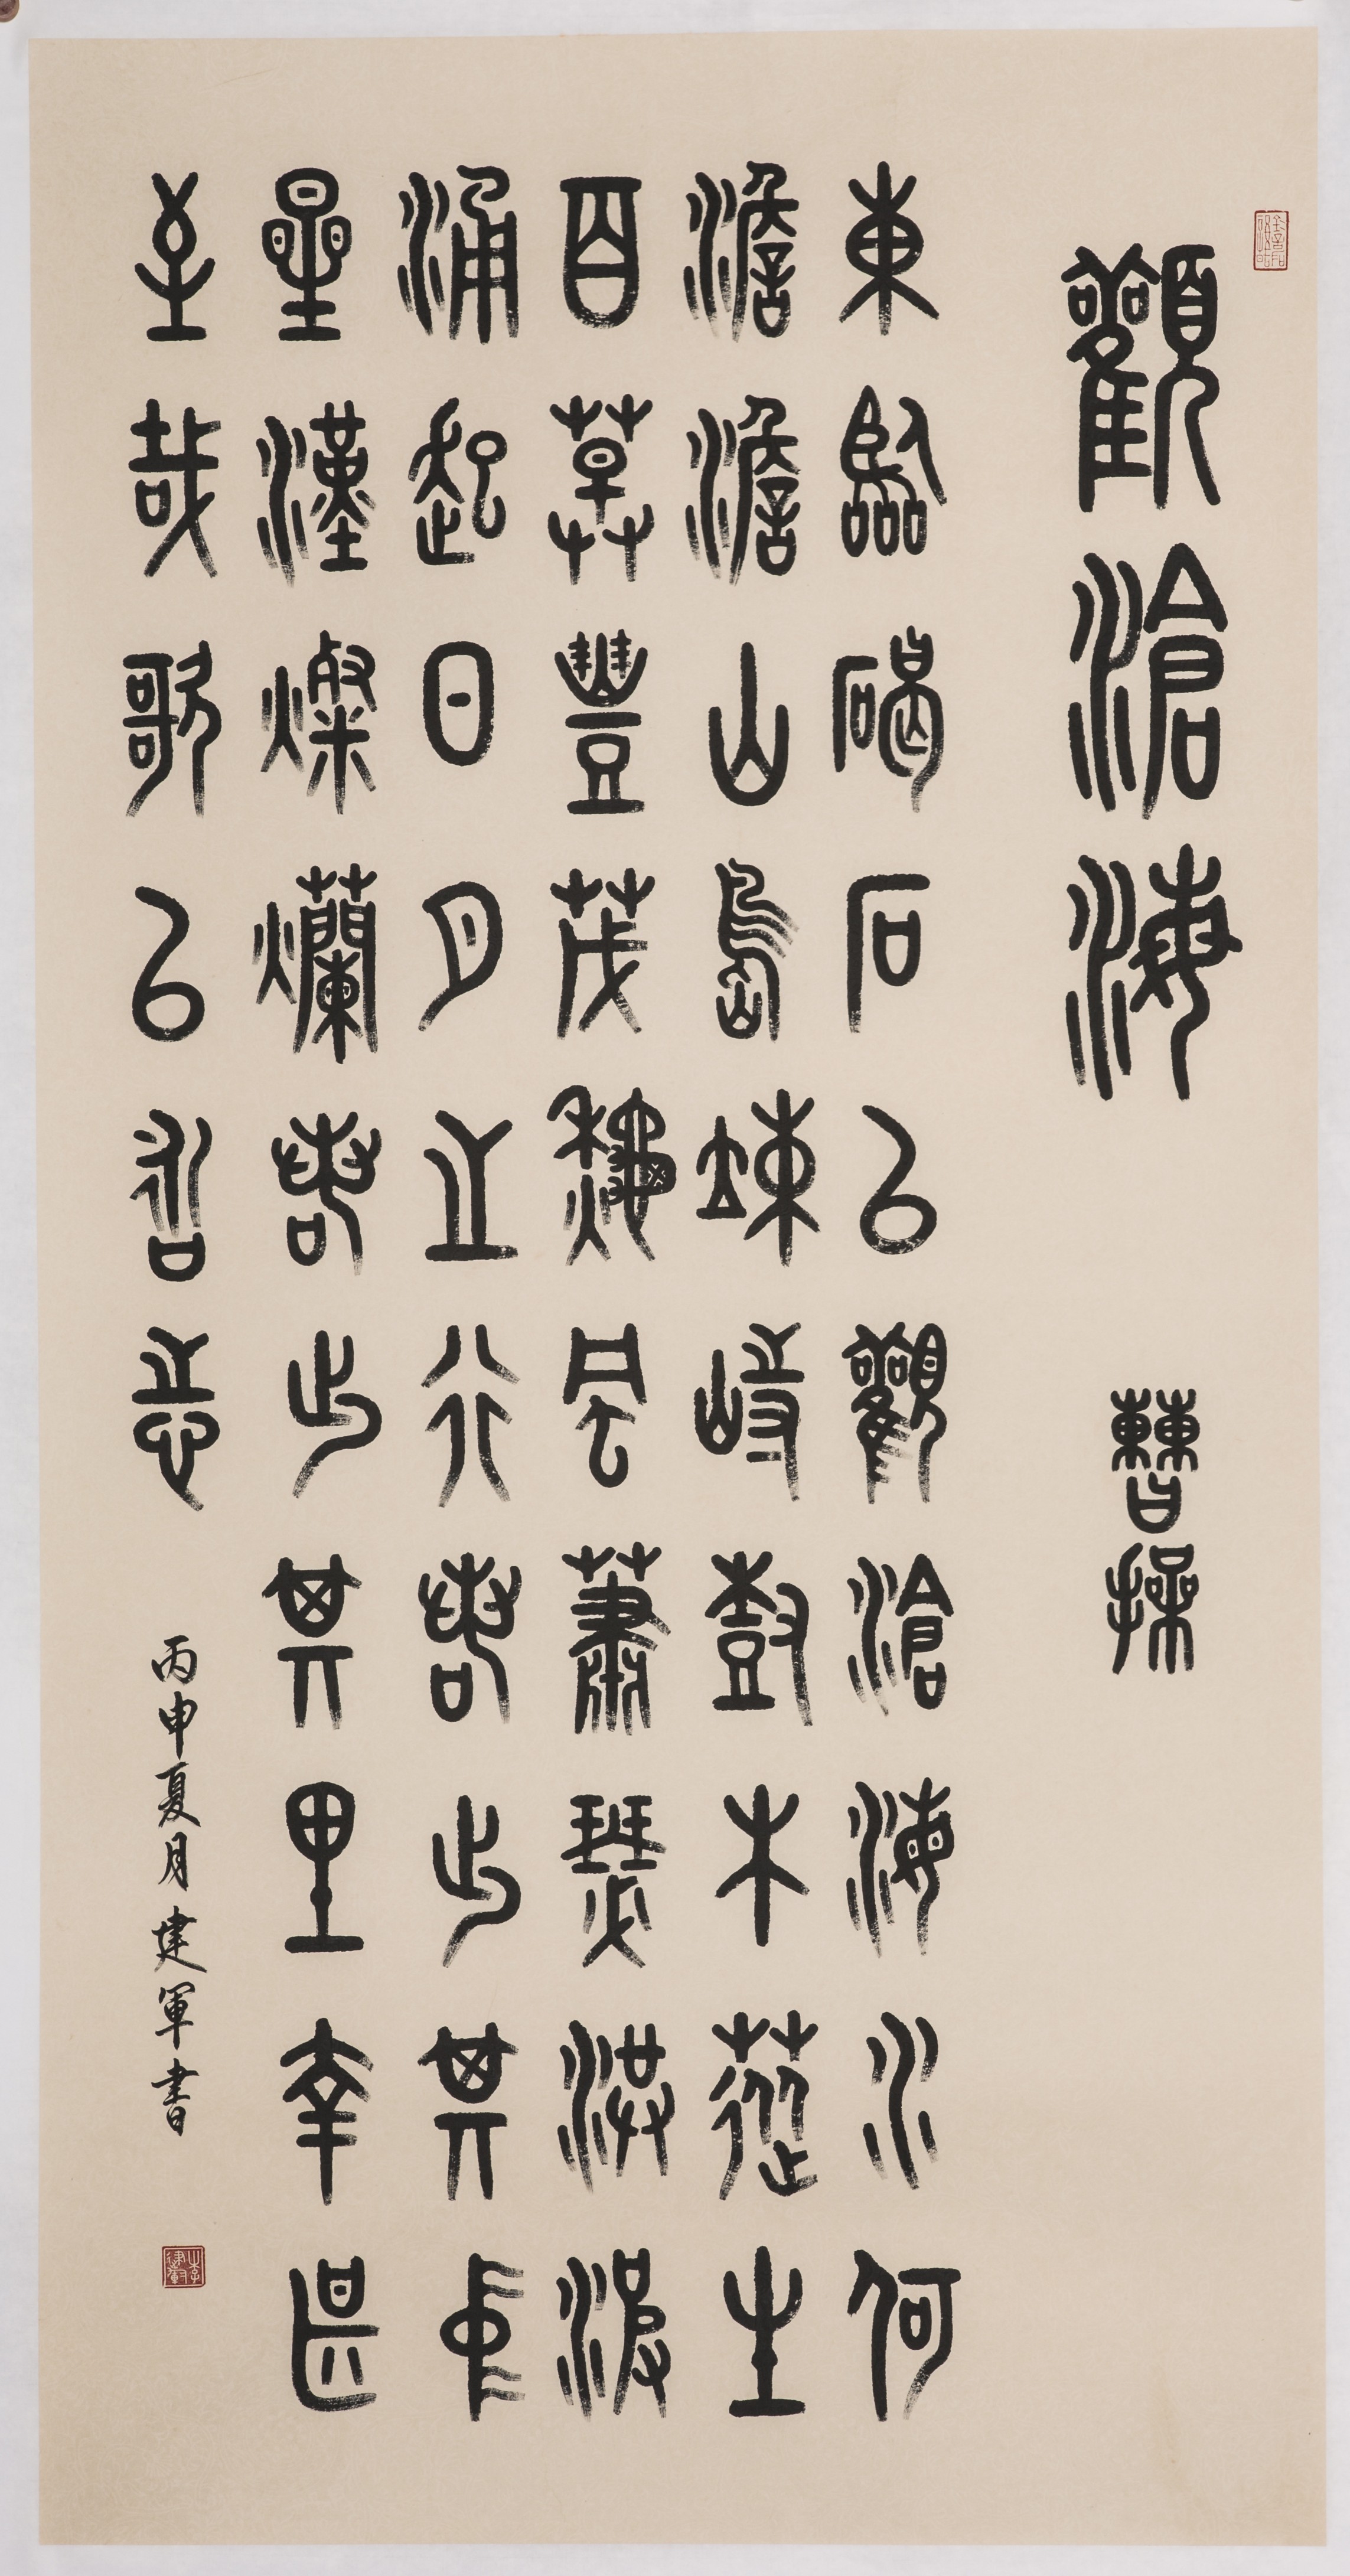 觀滄海 曹操
東臨碣石以觀滄海水何
澹澹山島竦峙樹木叢生
百草豐茂秋風蕭瑟洪波
涌起日月之行若出其中
星漢燦爛若出其里幸甚
至哉歌以咏志 丙申夏月建軍書